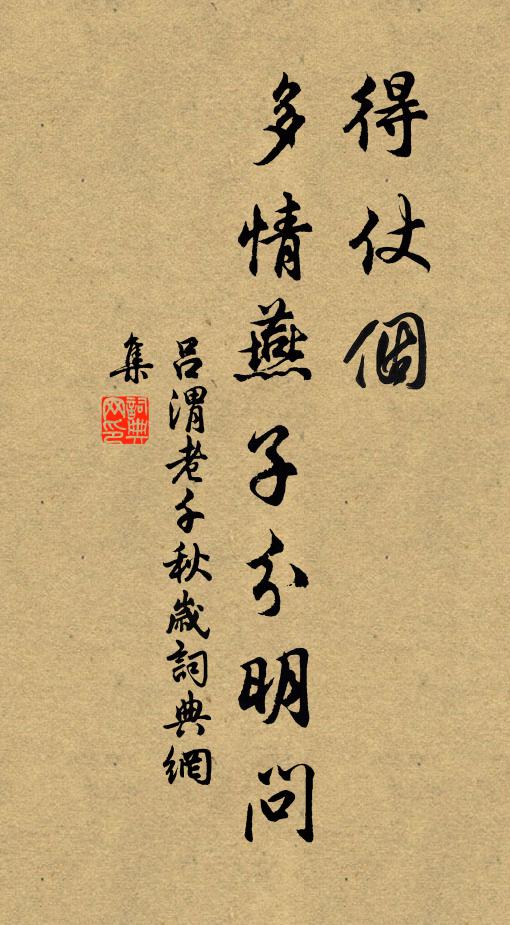 得仗個
多情燕子分明問
呂渭老千秋歲詞典網
集
詞典
网印